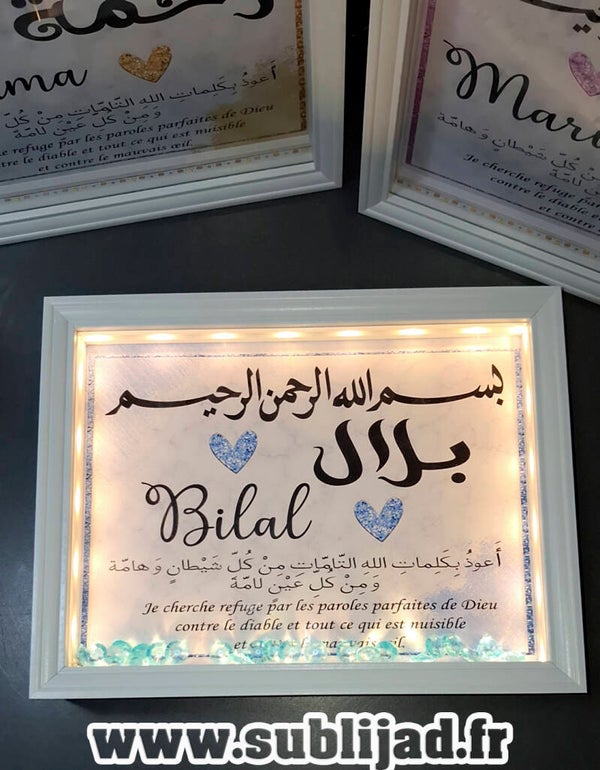 ama
أَعوذُ بِكَلماتِ اللهِ التَّامَّاتِ مِنْ كُلِّ
وَمِنْ كُلِّ عَيْنٍ لامَّة
he refuge par les paroles parfaites de Dieu
ntre le diable et tout ce qui est nuisible
et contre le mauvais œil.
Mari
مِنْ كُلِّ شَيْطانٍ وَهامَّة
Je cherche refuge
contre le diable
et contre
بسم الله الرحمن الرحيم
بلال
Bilal
أَعوذُ بِكَلِماتِ اللهِ التَّامَّاتِ مِنْ كُلِّ شَيْطانٍ وَهامَّة
وَمِنْ كُلِّ عَيْنٍ لامَّة
Je cherche refuge par les paroles parfaites de Dieu
contre le diable et tout ce qui est nuisible
et contre le mauvais œil.
www.sublijad.fr